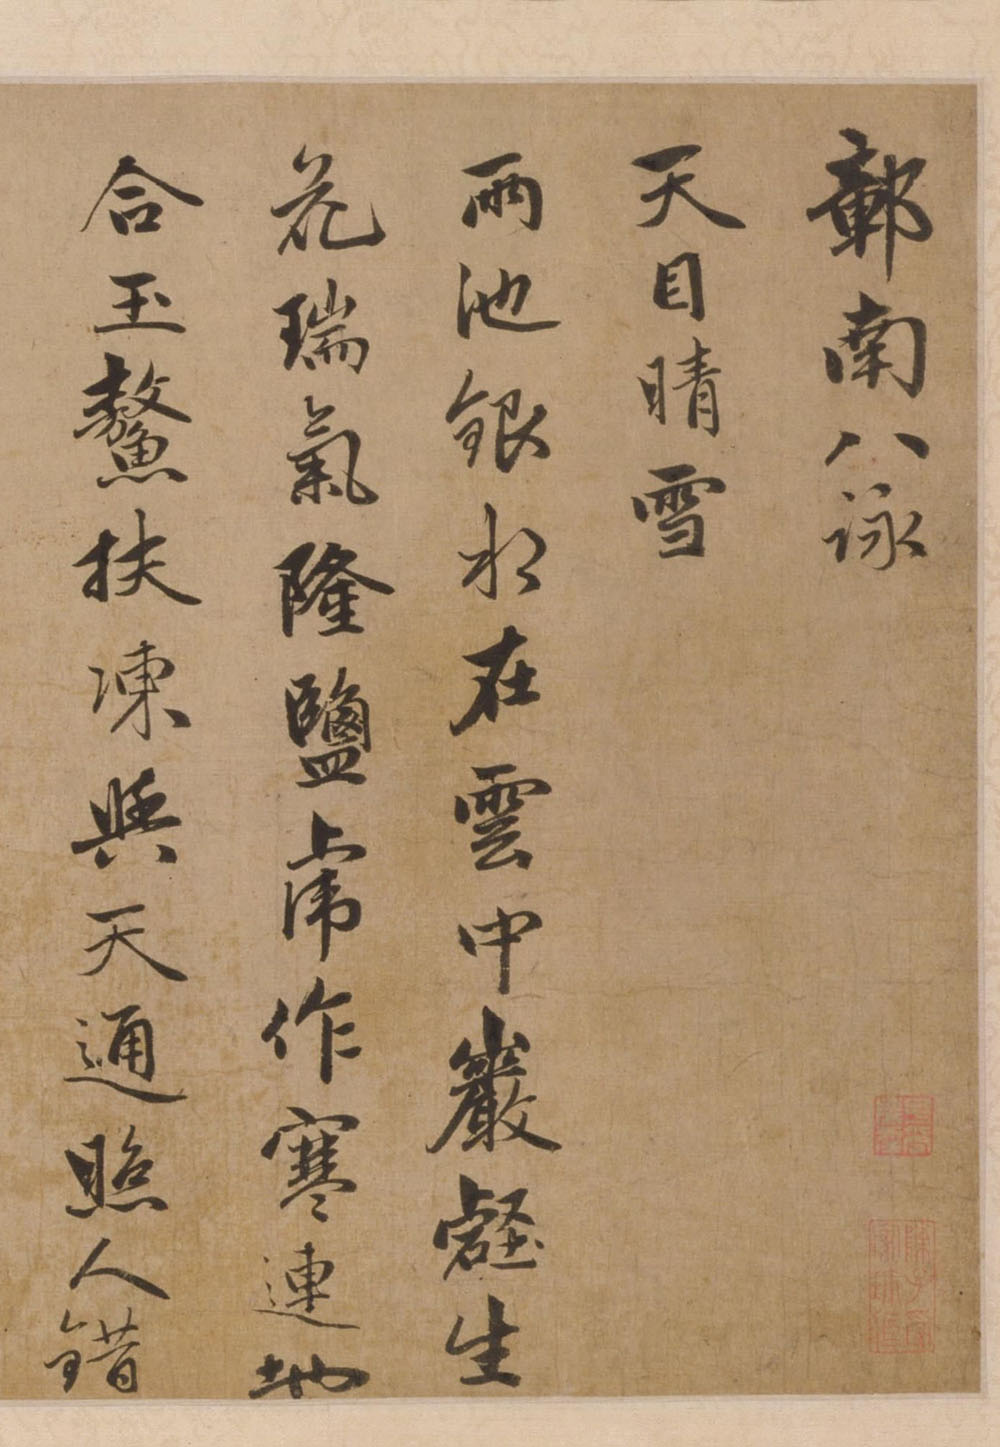 鄣南八詠
天目晴雪
兩池銀水在雲中巖壑生
花瑞氣隆鹽虎作寒連地
合玉鰲扶凍與天通照人錯